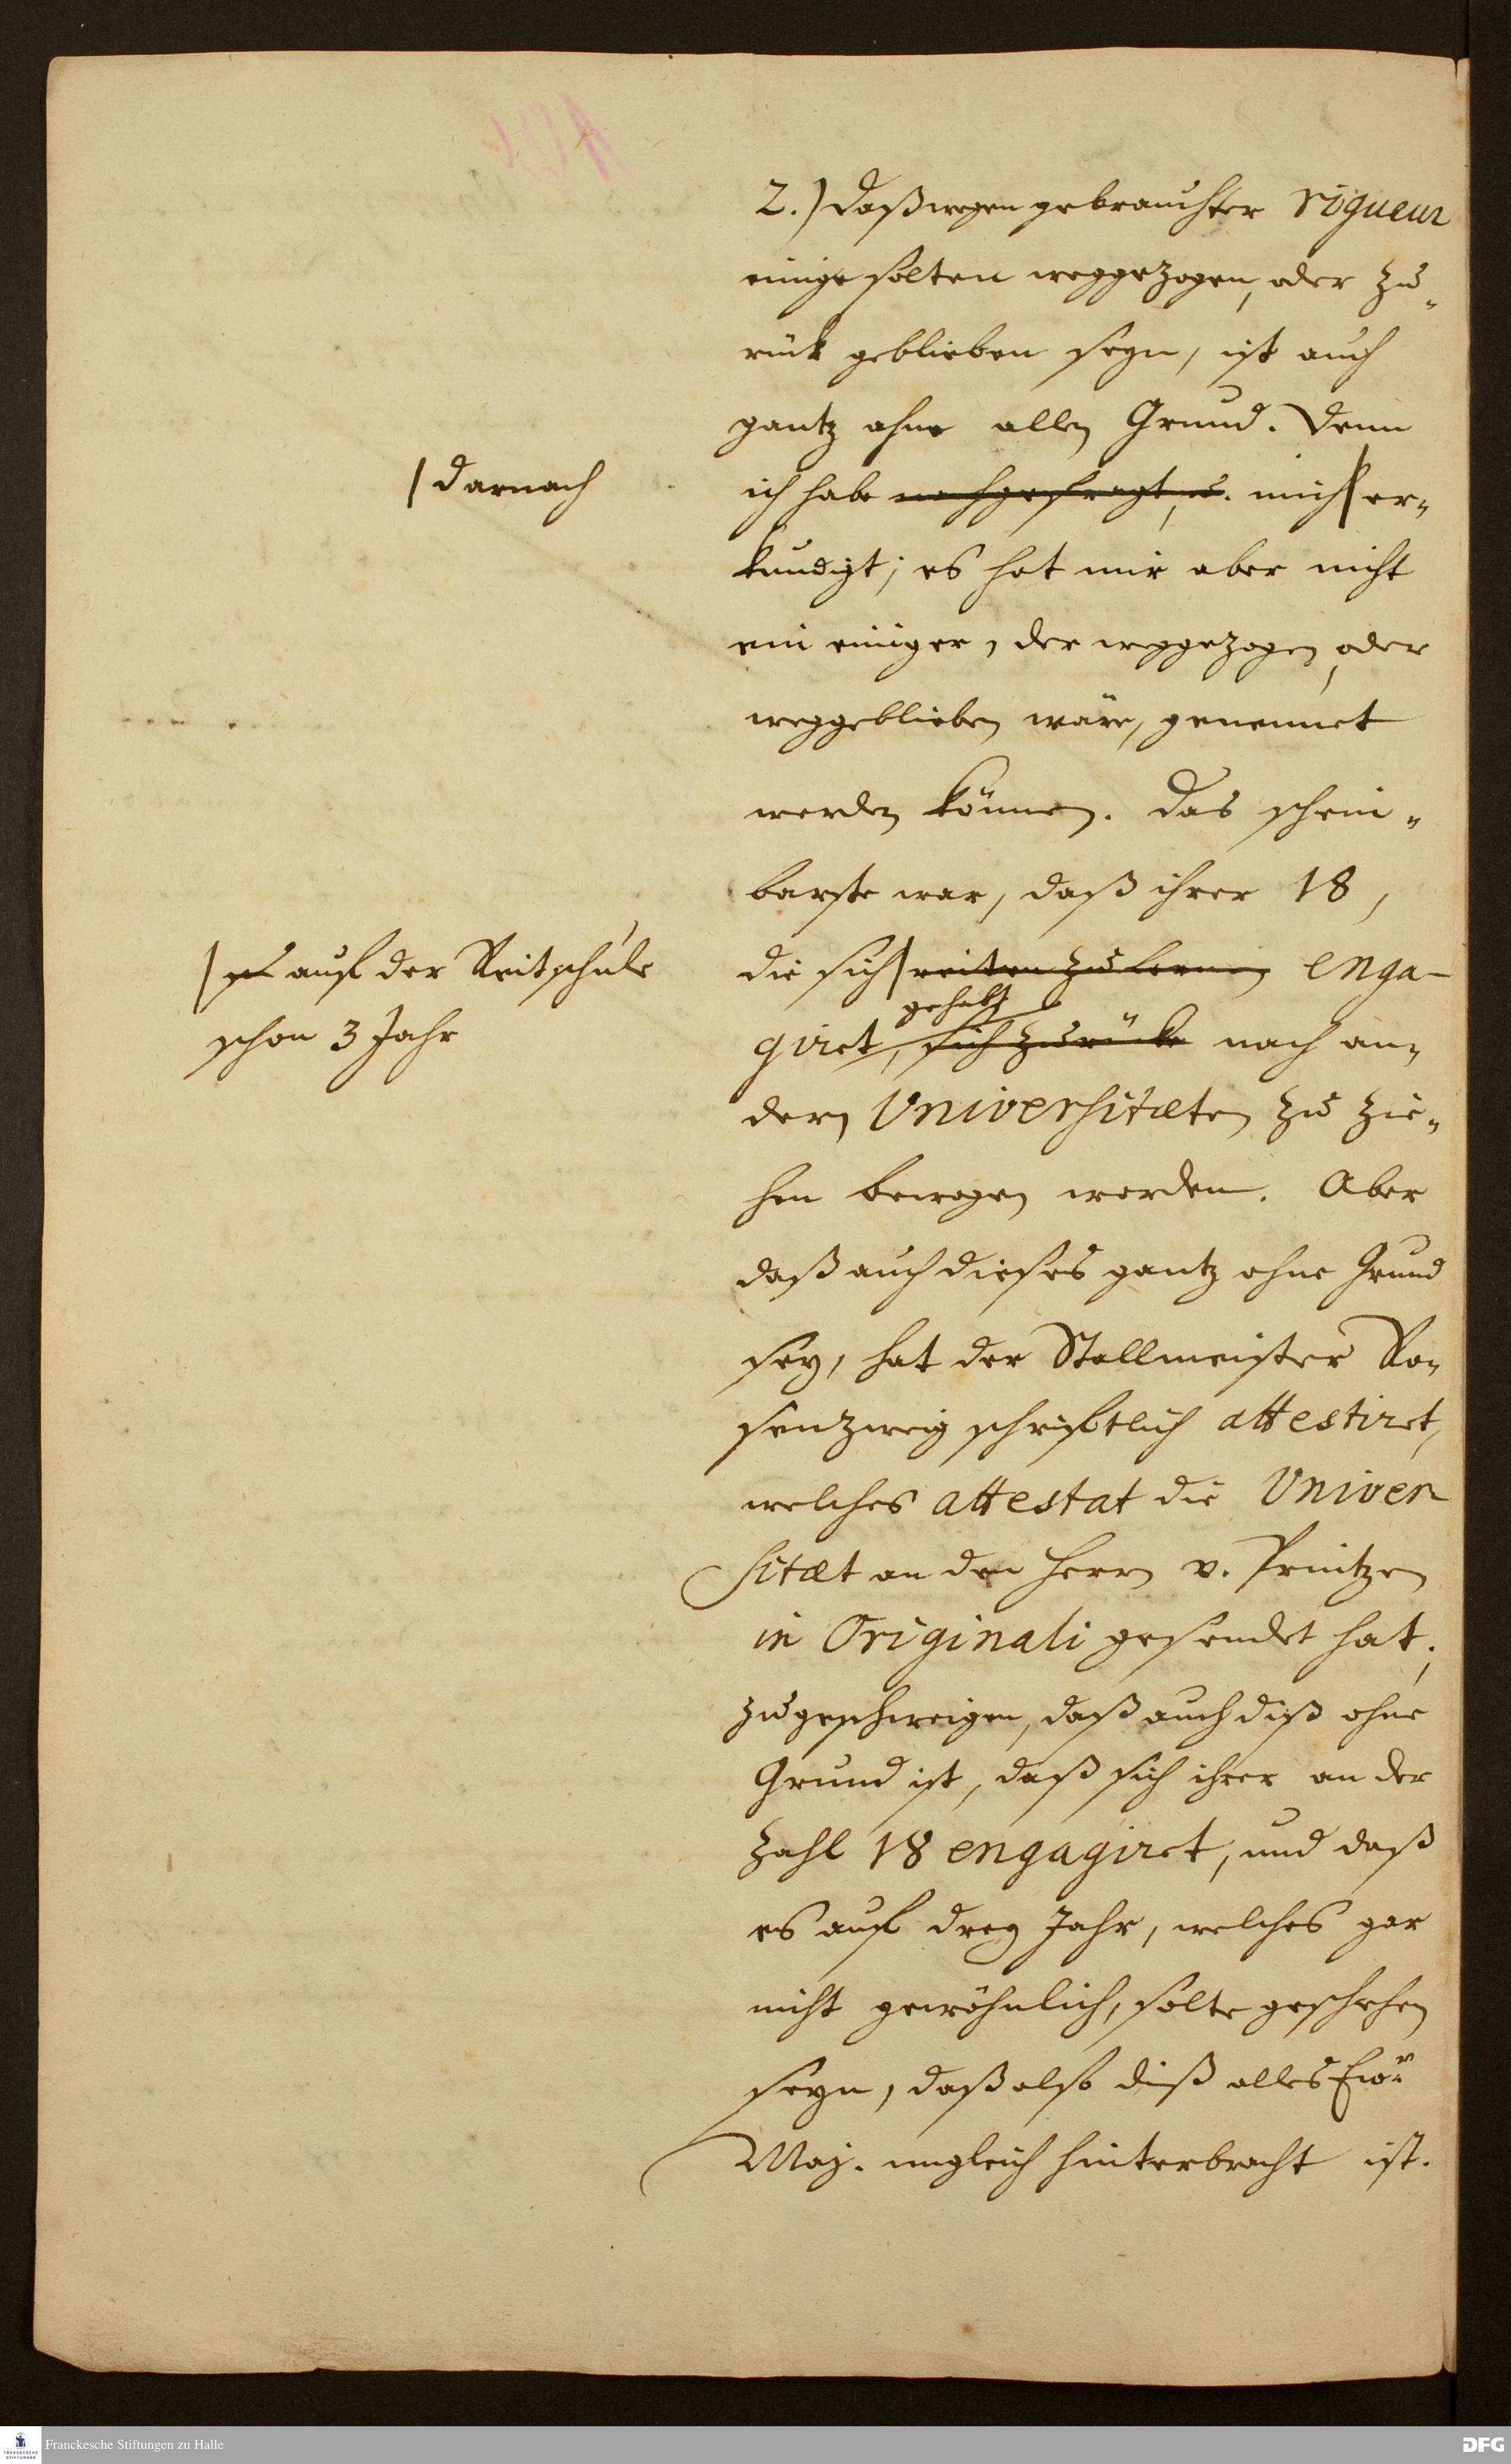 2.) daß wegen gebrauchter rigueur
einige solten weggezogen, oder zu„
rück geblieben seyn, ist auch
gantz ohne allen Grund. Denn
| darnach
ich habe nachgefragt, u. mich | er„
kundigt; es hat mir aber nicht
ein einiger, der weggezogen, oder
weggeblieben wäre, genennet
werden können. Das schein„
barste war, daß ihrer 18,
| auf der Reitschule
schon 3 Jahr
die sich | reiten zu lernen enga-
gehabt
giret, sich zurücke nach an„
dern Universitæten zu zie„
hen bewogen worden. Aber
daß auch dieses gantz ohne Grund
sey, hat der Stallmeister Ro„
senzweig schriftlich attestiret,
welches attestat die Univer
sitæt an den Herrn v. Printzen
in Originali gesendet hat;
zugeschweigen, daß auch diß ohne
Grund ist, daß sich ihrer an der
Zahl 18 engagiret, und daß
es auf drey Jahr, welches gar
nicht gewöhnlich, solte geschehen
seyn, daß also diß alles Ewr
Maj. ungleich hinterbracht ist.
Franckesche Stiftungen zu Halle
FRANCKESCHE STIFTUNGEN
DFG